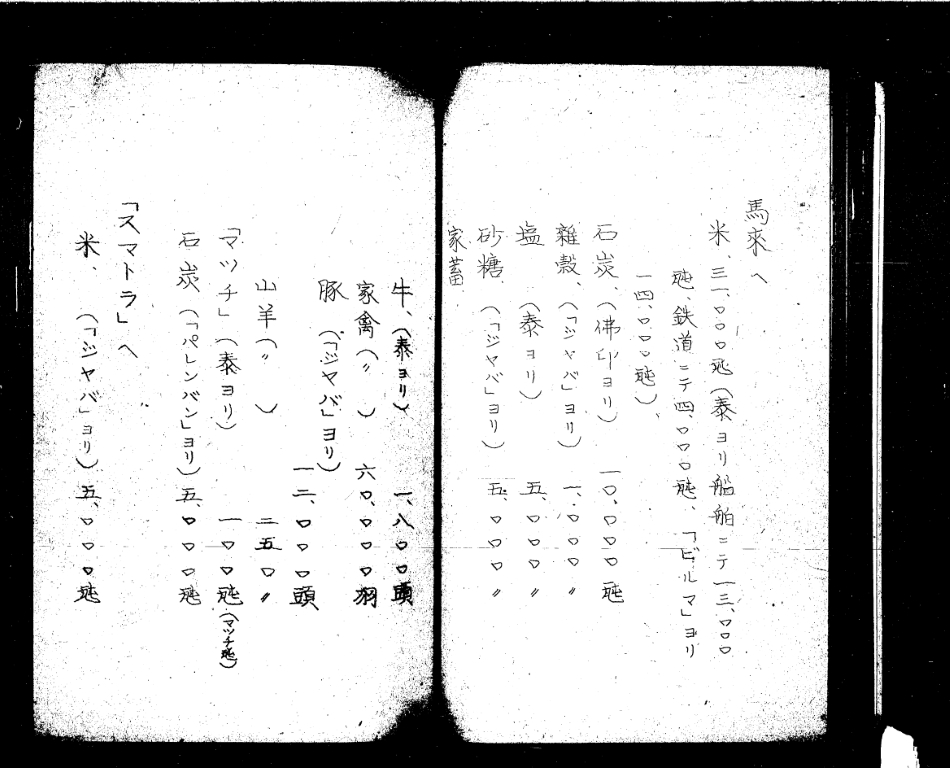 馬来ヘ
米、三一、〇〇〇瓲(泰ヨリ船舶ニテ一三、〇〇〇
瓲、鉄道ニテ四、〇〇〇瓲、「ビルマ」ヨリ
一四、〇〇〇瓲)、
石炭、(佛印ヨリ) 一〇、〇〇〇瓲
雜穀、(「ジャバ」ヨリ) 一、〇〇〇〃
塩 (泰ヨリ) 五、〇〇〇〃
砂糖 (「ジャバ」ヨリ) 五、〇〇〇〃
家蓄
牛、(泰ヨリ) 一、八〇〇頭
家禽(〃 ) 六〇、〇〇〇羽
豚 (「ジヤバ」ヨリ) 一二、〇〇〇頭
山羊(〃 ) 二五〇〃
「マッチ」(泰ヨリ) 一〇〇瓲(マッチ瓲)
石炭(「パレンバン」ヨリ) 五、〇〇〇瓲
「スマトラ」ヘ
米、(「ジヤバ」ヨリ) 五、〇〇〇瓲